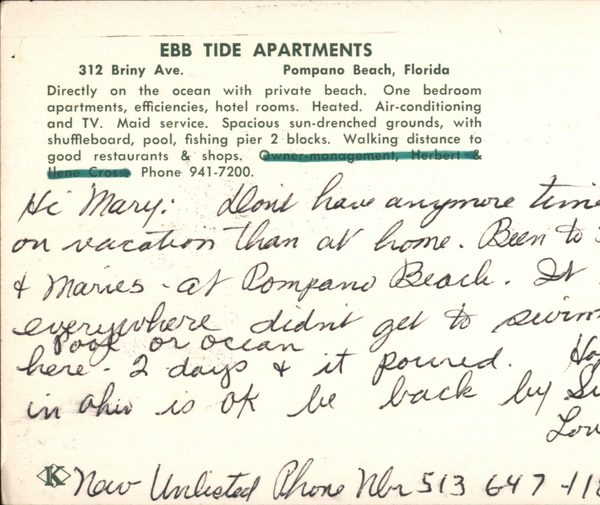 EBB TIDE APARTMENTS
312 Briny Ave. Pompano Beach, Florida
Directly on the ocean with private beach. One bedroom
apartments, efficiencies, hotel rooms. Heated. Air-conditioning
and TV. Maid service. Spacious sun-drenched grounds, with
shuffleboard, pool, fishing pier 2 blocks. Walking distance to
good restaurants & shops. Owner-management, Herbert &
Ilene Cross. Phone 941-7200.
Hi Mary: Dont have anymore time
on vacation than at home. Been to
& Maries - at Pompano Beach. It
everywhere didnt get to swim
Pool or ocean
here - 2 days & it poured.
in Ohio is OK be back by
K New Unlisted Phone Nbr 513 647-